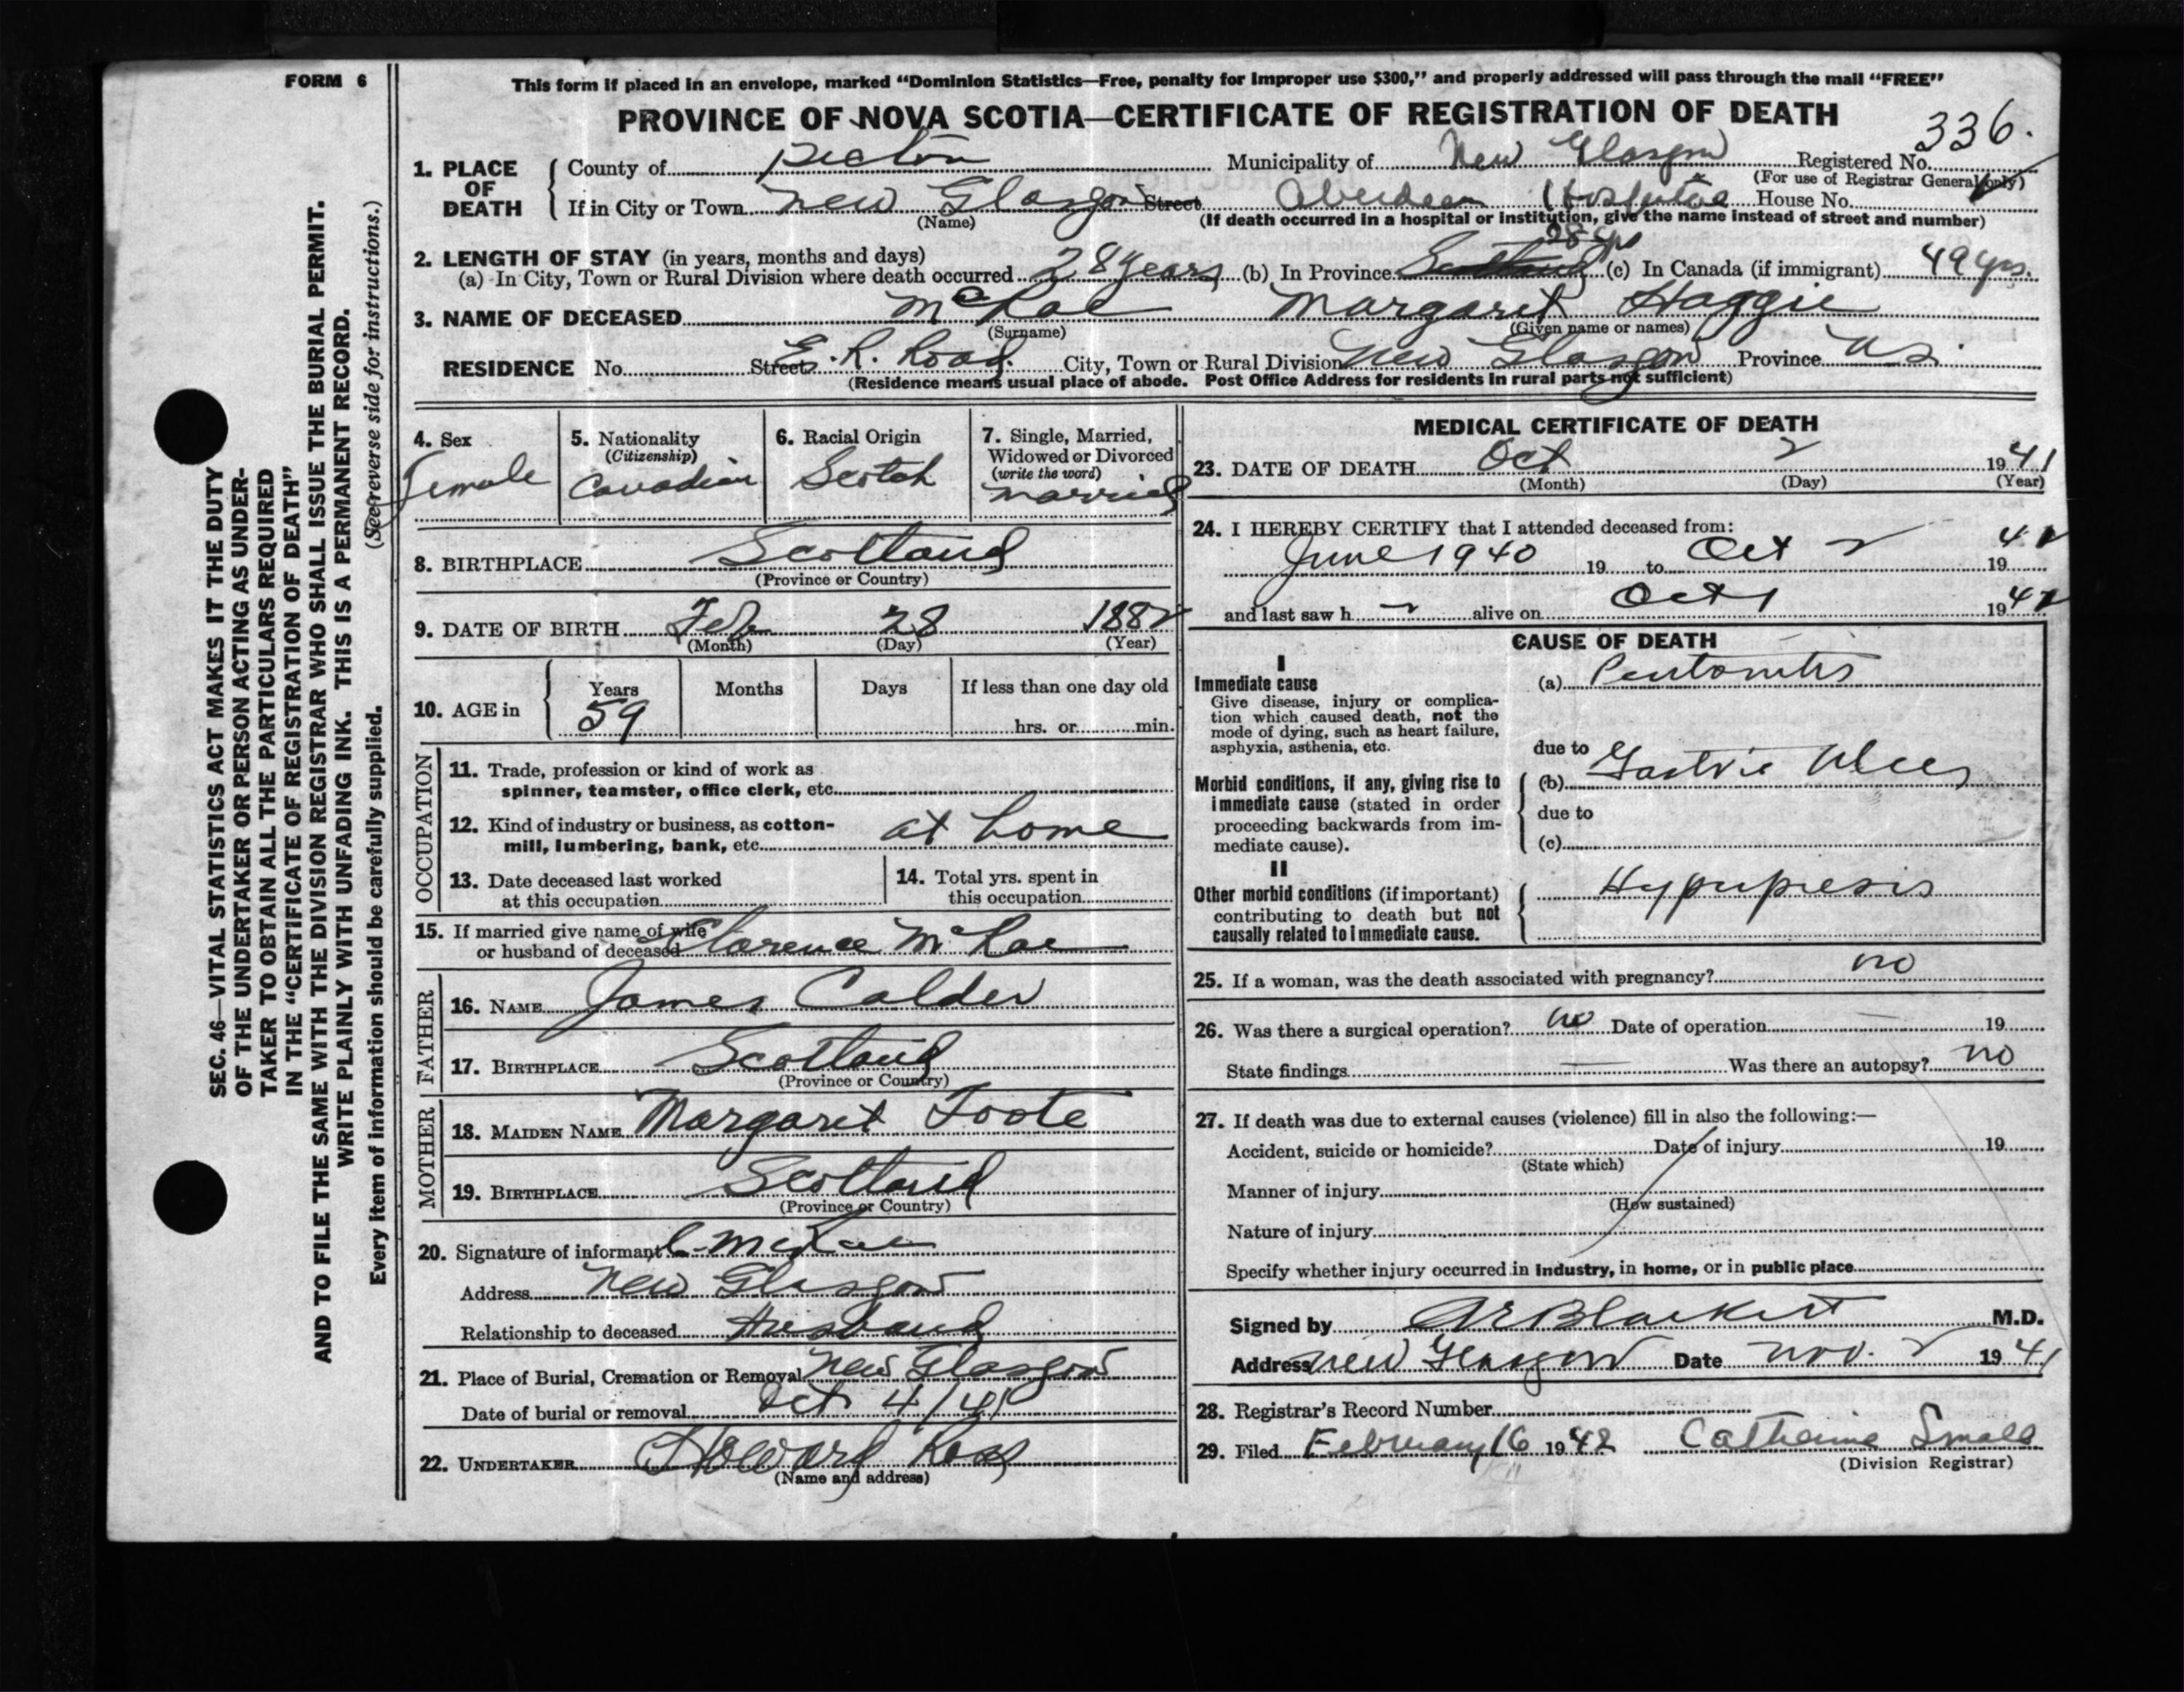 FORM 6
This form if placed in an envelope, marked "Dominion Statistics—Free, penalty for improper use $300," and properly addressed will pass through the mail "FREE"
PROVINCE OF NOVA SCOTIA—CERTIFICATE OF REGISTRATION OF DEATH
336.
1. PLACE OF DEATH
County of Pictou Municipality of New Glasgow Registered No.
(For use of Registrar General only)
If in City or Town New Glasgow Street Aberdeen Hospital House No.
(Name) (If death occurred in a hospital or institution, give the name instead of street and number)
2. LENGTH OF STAY (in years, months and days)
28 yrs
(a) In City, Town or Rural Division where death occurred 28 years (b) In Province Scotland (c) In Canada (if immigrant) 49 yrs.
3. NAME OF DECEASED McRae Margaret Haggie
(Surname) (Given name or names)
RESIDENCE No. Street E. R. Road. City, Town or Rural Division New Glasgow Province N.S.
(Residence means usual place of abode. Post Office Address for residents in rural parts not sufficient)
4. Sex
Female
5. Nationality
(Citizenship)
Canadian
6. Racial Origin
Scotch
7. Single, Married, Widowed or Divorced
(write the word)
married
8. BIRTHPLACE Scotland
(Province or Country)
9. DATE OF BIRTH Feb 28 1882
(Month) (Day) (Year)
10. AGE in
Years Months Days If less than one day old
59 hrs. or min.
OCCUPATION
11. Trade, profession or kind of work as
spinner, teamster, office clerk, etc.
12. Kind of industry or business, as cotton-
mill, lumbering, bank, etc. at home
13. Date deceased last worked
at this occupation
14. Total yrs. spent in
this occupation
15. If married give name of wife
or husband of deceased Clarence McRae
FATHER
16. NAME James Calder
17. BIRTHPLACE Scotland
(Province or Country)
MOTHER
18. MAIDEN NAME Margaret Foote
19. BIRTHPLACE Scotland
(Province or Country)
20. Signature of informant C. McRae
Address New Glasgow
Relationship to deceased Husband
21. Place of Burial, Cremation or Removal New Glasgow
Date of burial or removal Oct 4/41
22. UNDERTAKER Howard Ross
(Name and address)
MEDICAL CERTIFICATE OF DEATH
23. DATE OF DEATH Oct 2 1941
(Month) (Day) (Year)
24. I HEREBY CERTIFY that I attended deceased from:
June 1940 19 to Oct 2 1941
and last saw h alive on Oct 1 1941
CAUSE OF DEATH
I
Immediate cause
Give disease, injury or complica-
tion which caused death, not the
mode of dying, such as heart failure,
asphyxia, asthenia, etc.
(a) Peritonitis
due to
Morbid conditions, if any, giving rise to
immediate cause (stated in order
proceeding backwards from im-
mediate cause).
(b) Gastric Ulcer
due to
(c)
II
Other morbid conditions (if important)
contributing to death but not
causally related to immediate cause.
Hyperpiesis
25. If a woman, was the death associated with pregnancy? no
26. Was there a surgical operation? no Date of operation — 19
State findings — Was there an autopsy? no
27. If death was due to external causes (violence) fill in also the following:—
Accident, suicide or homicide? Date of injury 19
(State which)
Manner of injury
(How sustained)
Nature of injury
Specify whether injury occurred in industry, in home, or in public place
Signed by A E Blackett M.D.
Address New Glasgow Date Nov. 2 1941
28. Registrar's Record Number
29. Filed February 16 1942 Catherine Small
(Division Registrar)
SEC. 46—VITAL STATISTICS ACT MAKES IT THE DUTY
OF THE UNDERTAKER OR PERSON ACTING AS UNDER-
TAKER TO OBTAIN ALL THE PARTICULARS REQUIRED
IN THE "CERTIFICATE OF REGISTRATION OF DEATH"
AND TO FILE THE SAME WITH THE DIVISION REGISTRAR WHO SHALL ISSUE THE BURIAL PERMIT.
WRITE PLAINLY WITH UNFADING INK. THIS IS A PERMANENT RECORD.
(See reverse side for instructions.)
Every item of information should be carefully supplied.